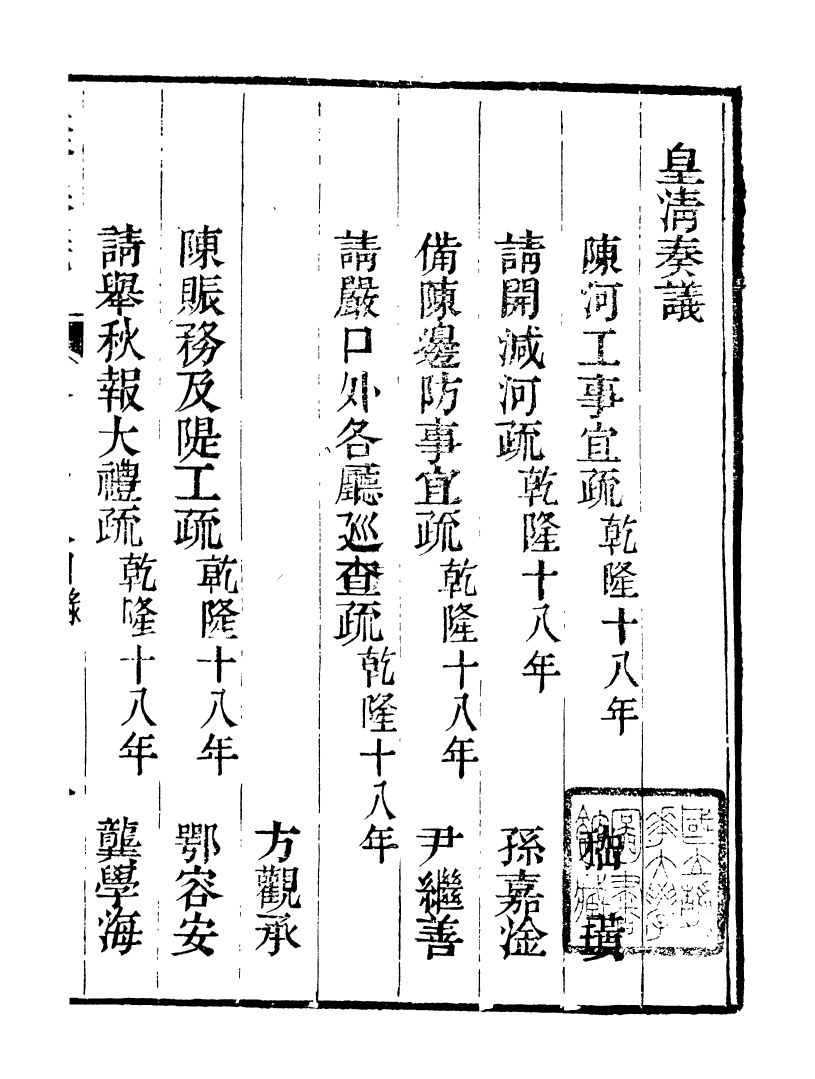 皇淸奏議
陳河工事宜疏 乾隆十八年 嵇璜
請開減河疏 乾隆十八年 孫嘉淦
備陳邊防事宜疏 乾隆十八年 尹繼善
請嚴口外各廳廵查疏 乾隆十八年
方觀承
陳賑務及隄工疏 乾隆十八年 鄂容安
請舉秋報大禮疏 乾隆十八年 龔學海
目錄